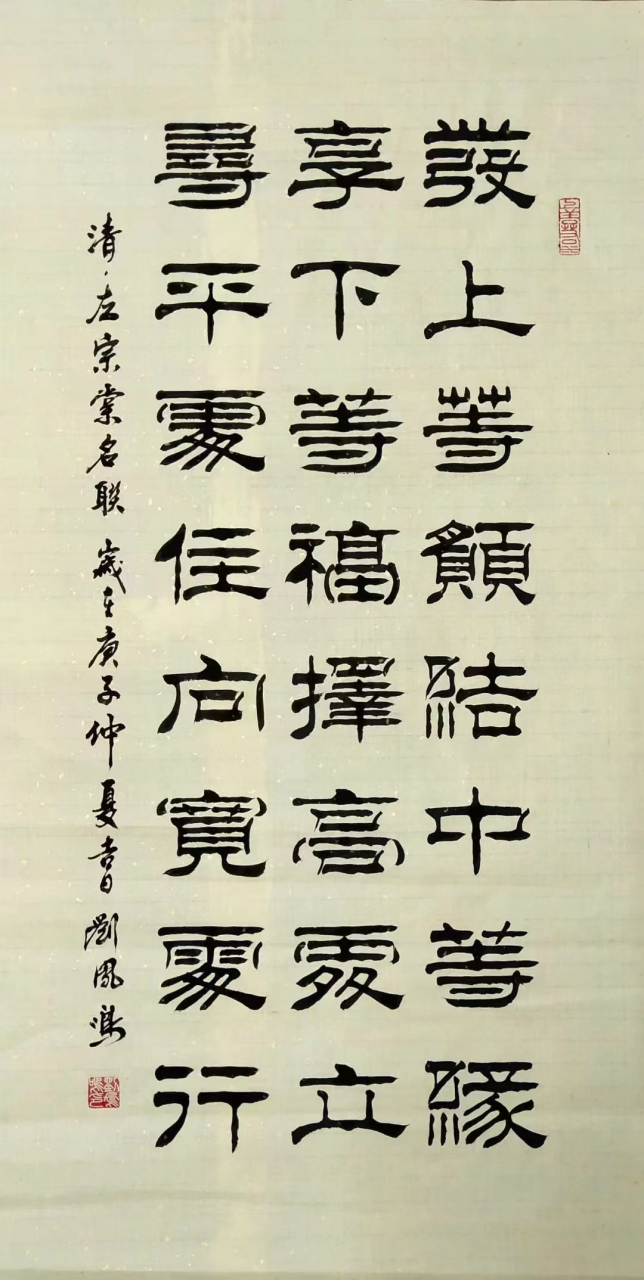 發上等願結中等緣
享下等福擇高處立
尋平處住向寬處行
清·左宗棠名聯 歲在庚子仲夏吉日 劉鳳鳴